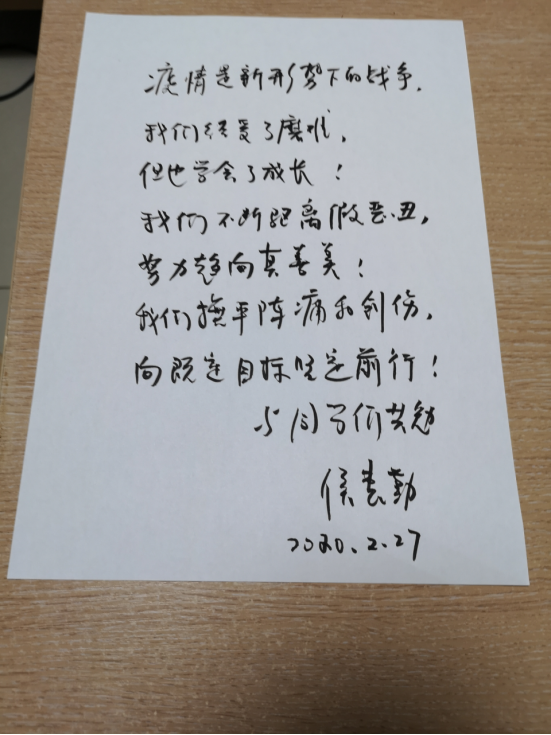 疫情是新形势下的战争,
我们经受了磨难,
但也学会了成长!
我们不断距离假恶丑,
努力趋向真善美!
我们抚平阵痛和创伤,
向既定目标坚定前行!
与同学们共勉
侯惠勤
2020.2.27